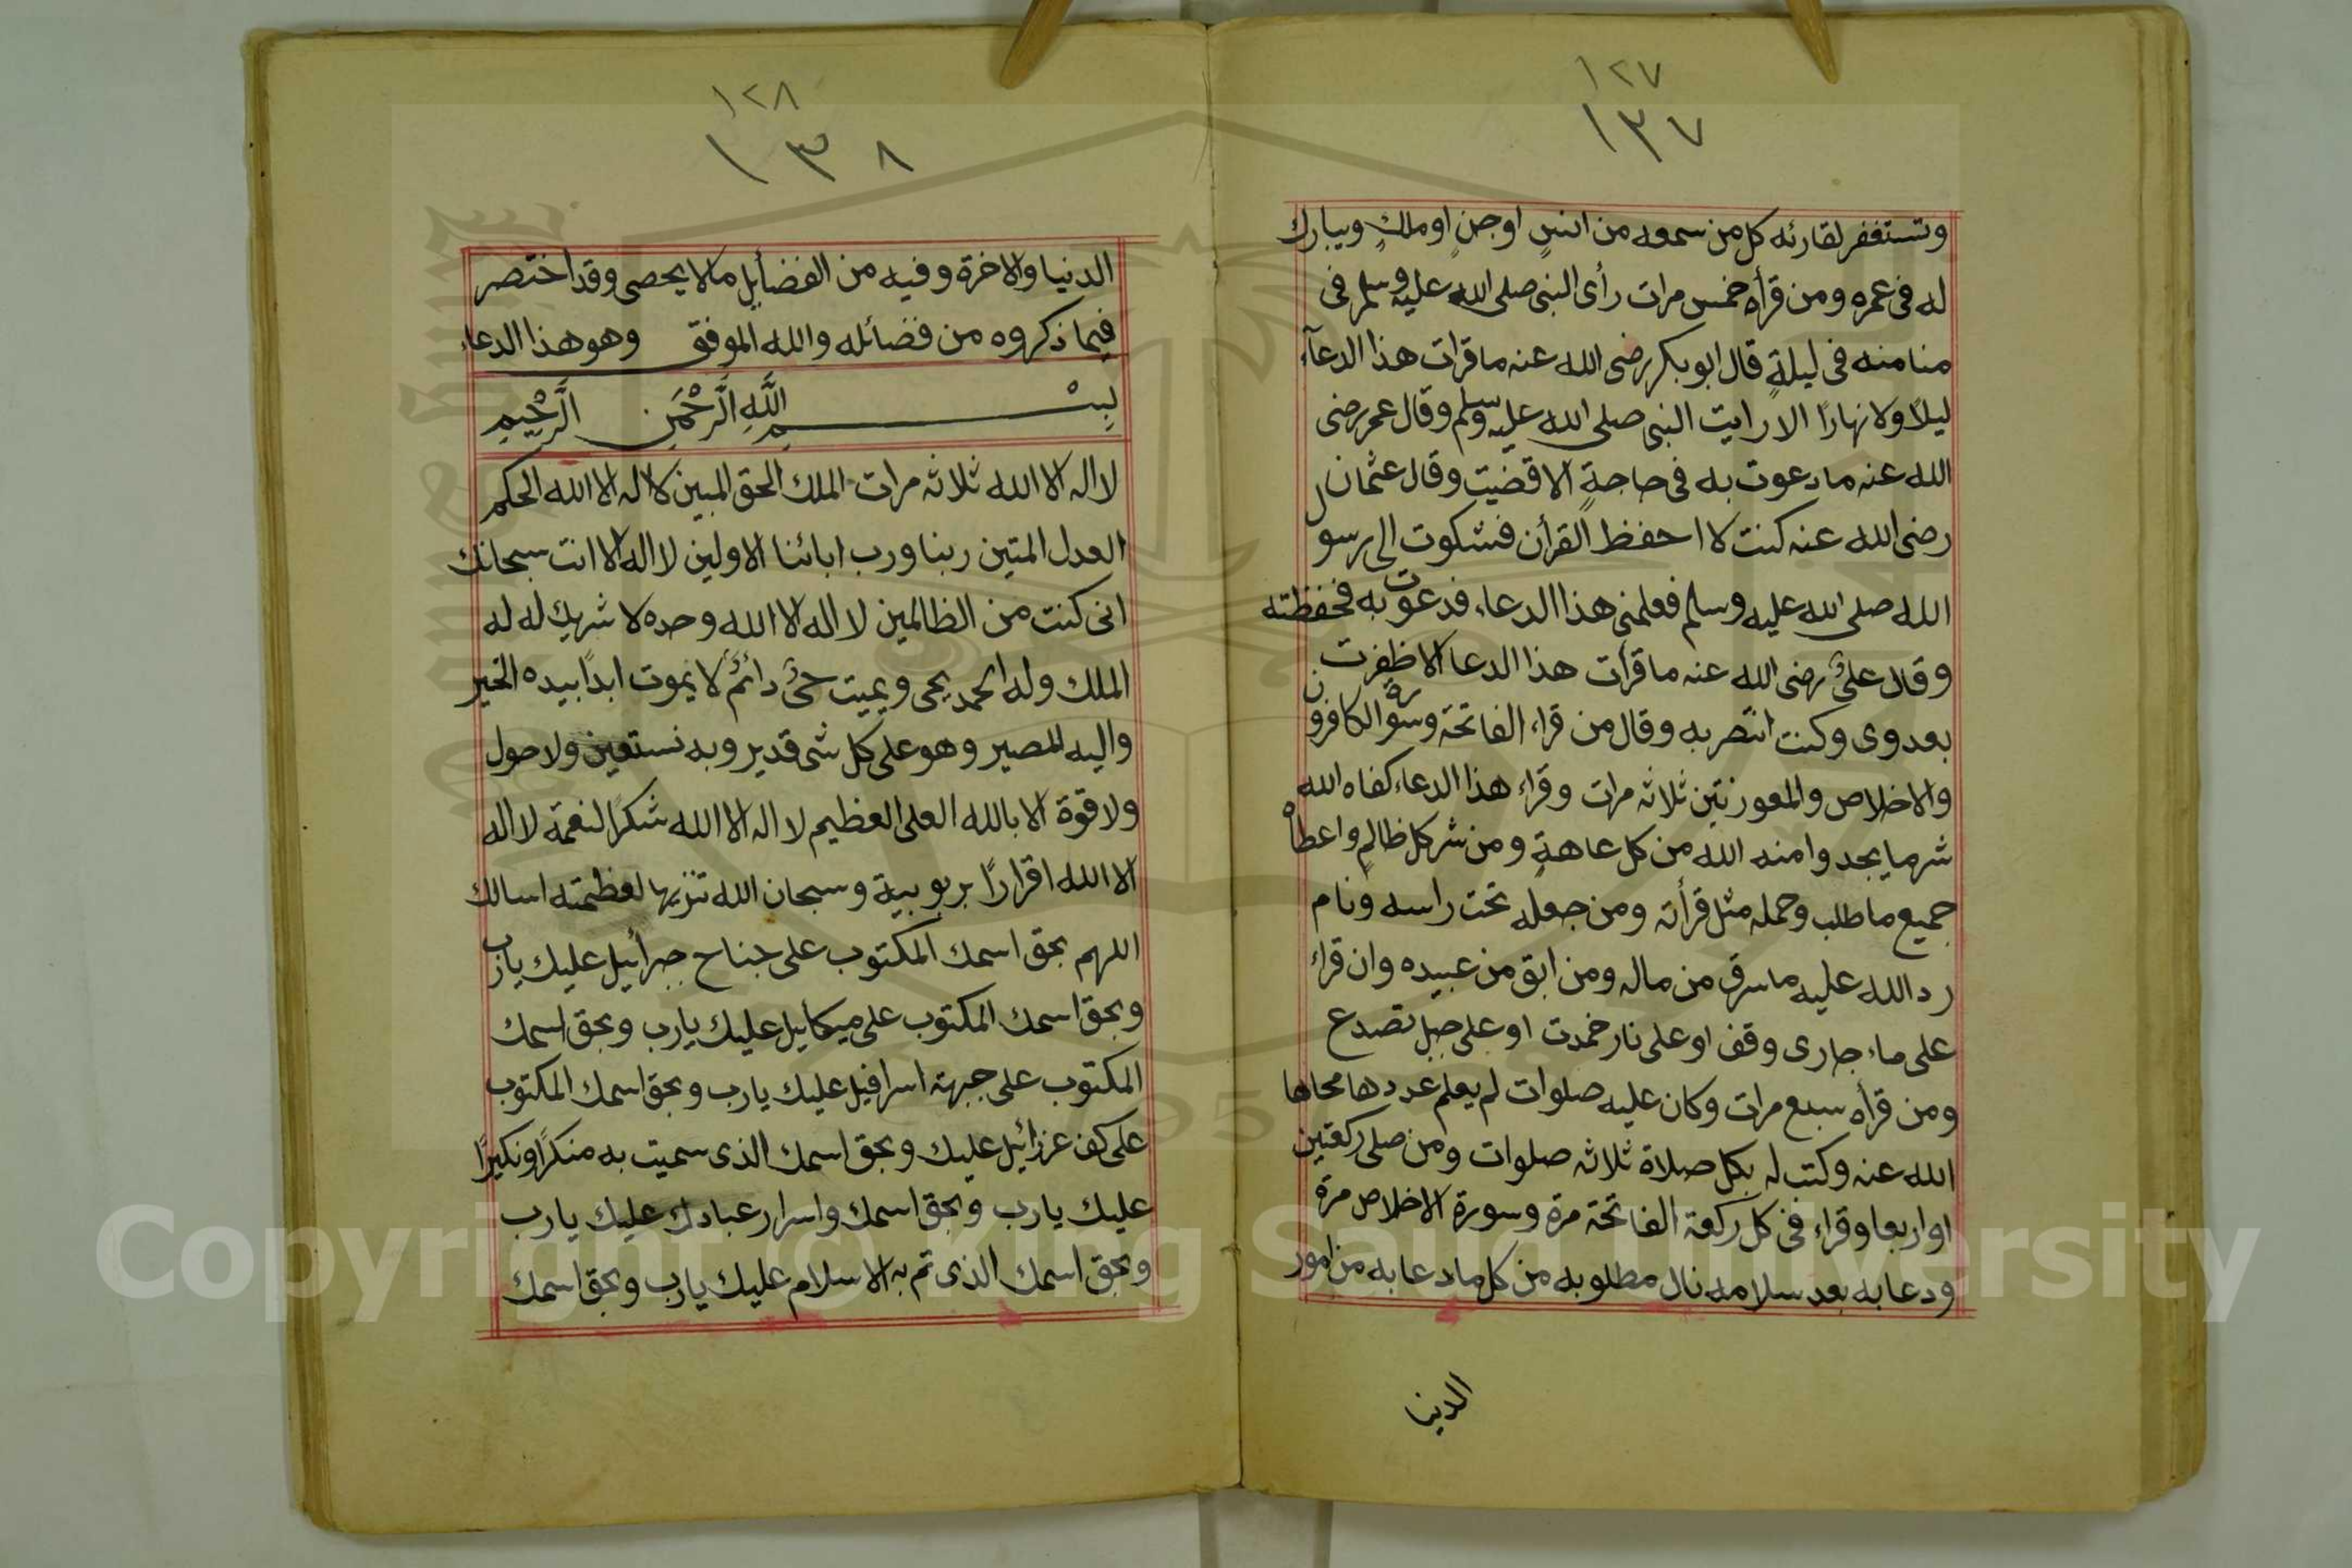 ١٢٧
١٣٧
وتستغفر لقارئه كل من سمعه من انسٍ اوجنٍ اوملكٍ ويبارك
له فى عمره ومن قرأه خمس مرات رأى النبى صلى الله عليه وسلم فى
منامنه فى ليلةٍ قال ابوبكر رضى الله عنه ماقرات هذا الدعآء
ليلًا ولا نهارًا الا رايت النبى صلى الله عليه وسلم وقال عمر رضى
الله عنه مادعوت به فى حاجةٍ الا قضيت وقال عثمان
رضى الله عنه كنت لا احفظ القرأن فشكوت الى رسول
الله صلى الله عليه وسلم فعلمنى هذا الدعاء فدعوت به فحفظته
وقال علىٌ رضى الله عنه ماقرأت هذا الدعا الا ظفرت
بعدوى وكنت انتصر به وقال من قراء الفاتحة وسورة الكافرون
والاخلاص والمعوزتين ثلاثه مرات وقراء هذا الدعاء كفاه الله
شر مايجد وامنه الله من كل عاهةٍ ومن شر كل ظالمٍ واعطاه
جميع ماطلب وحمله مثل قرأته ومن جعله تحت راسه ونام
رد الله عليه ماسرق من ماله ومن ابق من عبيده وان قراء
على ماء جارى وقف او على نار خمدت او على جبل تصدع
ومن قرأه سبع مرات وكان عليه صلوات لم يعلم عددها محاها
الله عنه وكتب له بكل صلاة ثلاثه صلوات ومن صلى ركعتين
او اربعا وقراء فى كل ركعة الفاتحة مرة وسورة الاخلاص مرة
ودعا به بعد سلامه نال مطلوبه من كل مادعا به من امور
الدنيا
١٢٨
١٣٨
الدنيا والاخرة وفيه من الفضأيل مالايحصى وقد اختصر
فيما ذكروه من فضائله والله الموفق وهو هذا الدعاء
بِسْمِ اللَّهِ الرَّحْمَنِ الرَّحِيمِ
لا اله الا الله ثلاثه مرات الملك الحق المبين لا اله الا الله الحكم
العدل المتين ربنا ورب ابائنا الاولين لا اله الا انت سبحانك
انى كنت من الظالمين لا اله الا الله وحده لا شريك له له
الملك وله الحمد يحى ويميت حىٌ دائمٌ لا يموت ابدًا بيده الخير
واليه المصير وهو على كل شى قدير وبه نستعين ولا حول
ولا قوة الا بالله العلى العظيم لا اله الا الله شكرًا لنعمة لا اله
الا الله اقرارًا بربوبية وسبحان الله تنزيها لعظمته اسالك
اللهم بحق اسمك المكتوب على جناح جبرأئيل عليك يارب
وبحق اسمك المكتوب على ميكايل عليك يارب وبحق اسمك
المكتوب على جبهة اسرافيل عليك يارب وبحق اسمك المكتوب
على كف عزرائيل عليك وبحق اسمك الذى سميت به منكرًا ونكيرًا
عليك يارب وبحق اسمك واسرار عبادك عليك يارب
وبحق اسمك الذى تم به الاسلام عليك يارب وبحق اسمك
Copyright © King Saud University